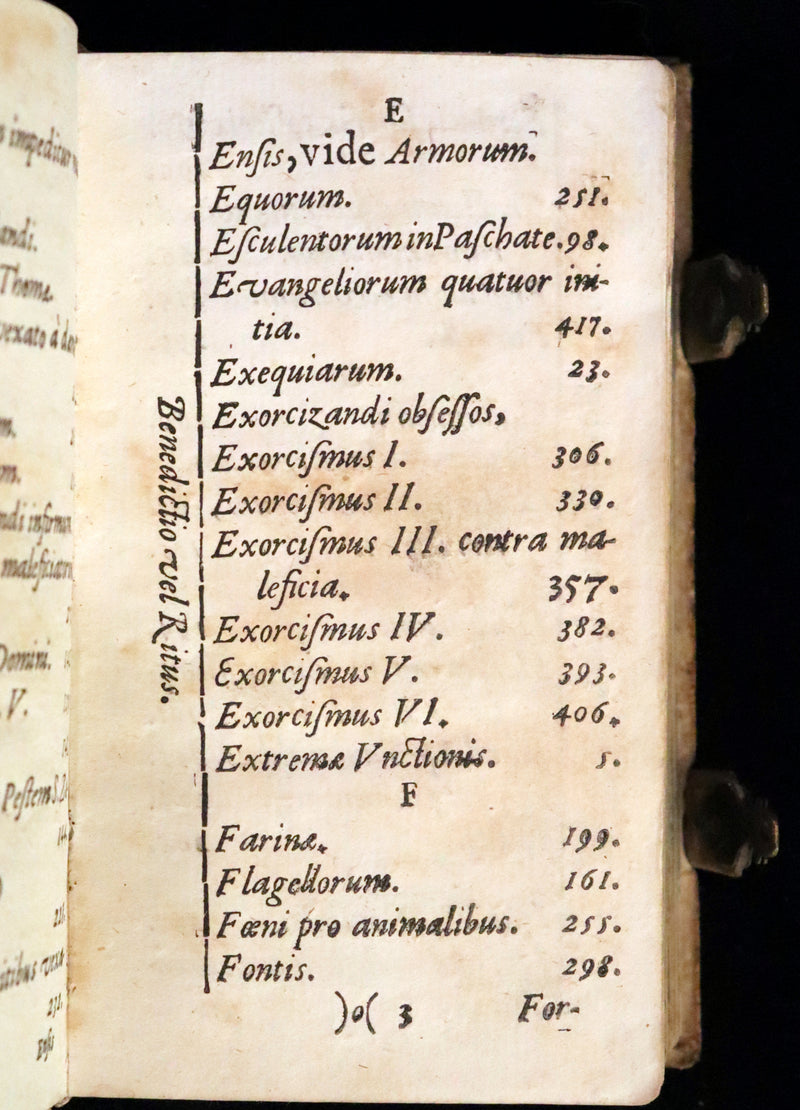 impeditur
andi.
Thomæ.
vexato à
ndi
Domini.
V.
Pestem S.
Benedictio vel Ritus.
E
Enſis, vide Armorum.
Equorum. 251.
Eſculentorum in Paſchate. 98.
Evangeliorum quatuor ini-
tia. 417.
Exequiarum. 23.
Exorcizandi obſeſſos,
Exorciſmus I. 306.
Exorciſmus II. 330.
Exorciſmus III. contra ma-
leficia. 357.
Exorciſmus IV. 382.
Exorciſmus V. 393.
Exorciſmus VI. 406.
Extremæ Vnctionis. 5.
F
Farinæ. 199.
Flagellorum. 161.
Fœni pro animalibus. 255.
Fontis. 298.
)o( 3 For-